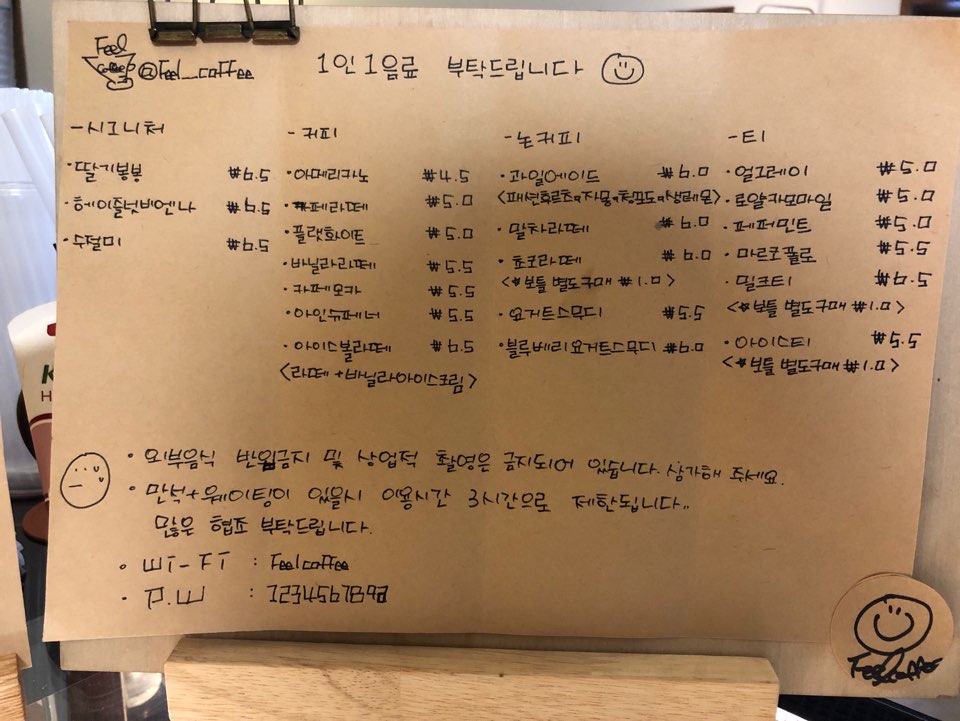 Feel
Coffee
@Feel_coffee 1인1음료 부탁드립니다
-시그니처
·딸기봉봉 ₩6.5
·헤이즐넛비엔나 ₩6.5
·수절미 ₩6.5
-커피
·아메리카노 ₩4.5
·카페라떼 ₩5.0
·플랫화이트 ₩5.0
·바닐라라떼 ₩5.5
·카페모카 ₩5.5
·아인슈페너 ₩5.5
·아이스볼라떼 ₩6.5
<라떼+바닐라아이스크림>
-논커피
·과일에이드 ₩6.0
<패션후르츠,자몽,청포도,생레몬>
·말차라떼 ₩6.0
·쵸코라떼 ₩6.0
<*보틀 별도구매 ₩1.0>
·요거트스무디 ₩5.5
·블루베리요거트스무디 ₩6.0
-티
·얼그레이 ₩5.0
·로얄캬모마일 ₩5.0
·페퍼민트 ₩5.0
·마르코폴로 ₩5.5
·밀크티 ₩6.5
<*보틀 별도구매 ₩1.0>
·아이스티 ₩5.5
<*보틀 별도구매 ₩1.0>
·외부음식 반입금지 및 상업적 촬영은 금지되어 있습니다. 삼가해 주세요.
·만석+웨이팅이 있을시 이용시간 3시간으로 제한됩니다..
많은 협조 부탁드립니다.
·WI-FI : Feelcoffee
·P.W : 1234567890
Feelcoffee